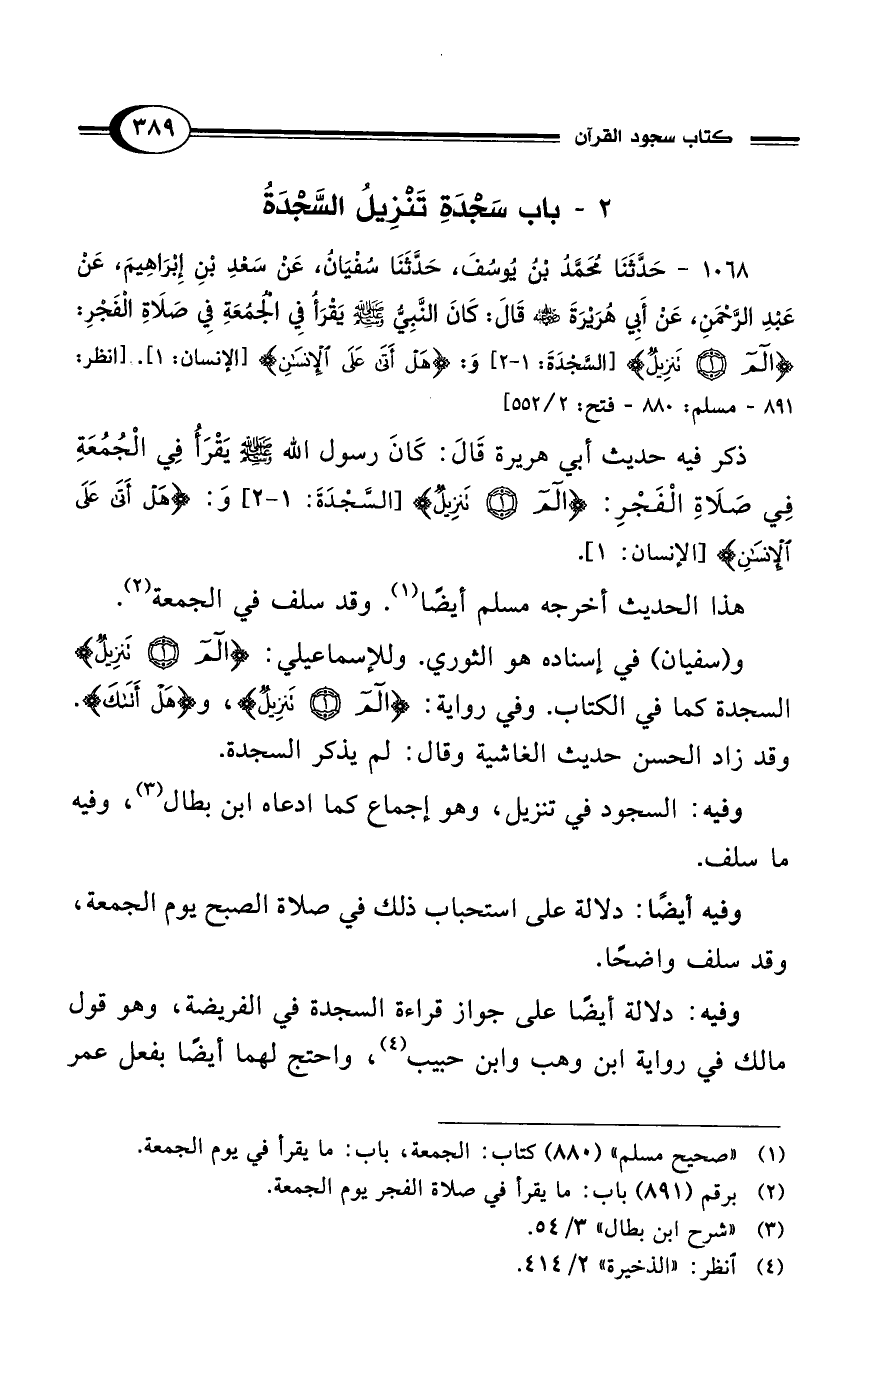 كتاب سجود القرآن ٣٨٩
٢ - باب سَجْدَةِ تَنْزِيلُ السَّجْدَةُ
١٠٦٨ - حَدَّثَنَا مُحَمَّدُ بْنُ يُوسُفَ، حَدَّثَنَا سُفْيَانُ، عَنْ سَعْدِ بْنِ إِبْرَاهِيمَ، عَنْ
عَبْدِ الرَّحْمَنِ، عَنْ أَبِي هُرَيْرَةَ ﷺ قَالَ: كَانَ النَّبِيُّ ﷺ يَقْرَأُ فِي الْجُمُعَةِ فِي صَلَاةِ الْفَجْرِ:
﴿الٓمٓ ۝١ تَنزِيلُ﴾ [السَّجْدَة: ١-٢] وَ: ﴿هَلْ أَتَىٰ عَلَى ٱلْإِنسَٰنِ﴾ [الإنسان: ١]. [انظر:
٨٩١ - مسلم: ٨٨٠ - فتح: ٢/ ٥٥٢]
ذكر فيه حديث أبي هريرة قَالَ: كَانَ رسول الله ﷺ يَقْرَأُ فِي الْجُمُعَةِ
فِي صَلَاةِ الْفَجْرِ: ﴿الٓمٓ ۝١ تَنزِيلُ﴾ [السَّجْدَة: ١-٢] وَ: ﴿هَلْ أَتَىٰ عَلَى
ٱلْإِنسَٰنِ﴾ [الإنسان: ١].
هذا الحديث أخرجه مسلم أيضًا(١). وقد سلف في الجمعة(٢).
و(سفيان) في إسناده هو الثوري. وللإسماعيلي: ﴿الٓمٓ ۝١ تَنزِيلُ﴾
السجدة كما في الكتاب. وفي رواية: ﴿الٓمٓ ۝١ تَنزِيلُ﴾، و﴿هَلْ أَتَىٰكَ﴾.
وقد زاد الحسن حديث الغاشية وقال: لم يذكر السجدة.
وفيه: السجود في تنزيل، وهو إجماع كما ادعاه ابن بطال(٣)، وفيه
ما سلف.
وفيه أيضًا: دلالة على استحباب ذلك في صلاة الصبح يوم الجمعة،
وقد سلف واضحًا.
وفيه: دلالة أيضًا على جواز قراءة السجدة في الفريضة، وهو قول
مالك في رواية ابن وهب وابن حبيب(٤)، واحتج لهما أيضًا بفعل عمر
(١) «صحيح مسلم» (٨٨٠) كتاب: الجمعة، باب: ما يقرأ في يوم الجمعة.
(٢) برقم (٨٩١) باب: ما يقرأ في صلاة الفجر يوم الجمعة.
(٣) «شرح ابن بطال» ٣/ ٥٤.
(٤) ٱنظر: «الذخيرة» ٢/ ٤١٤.